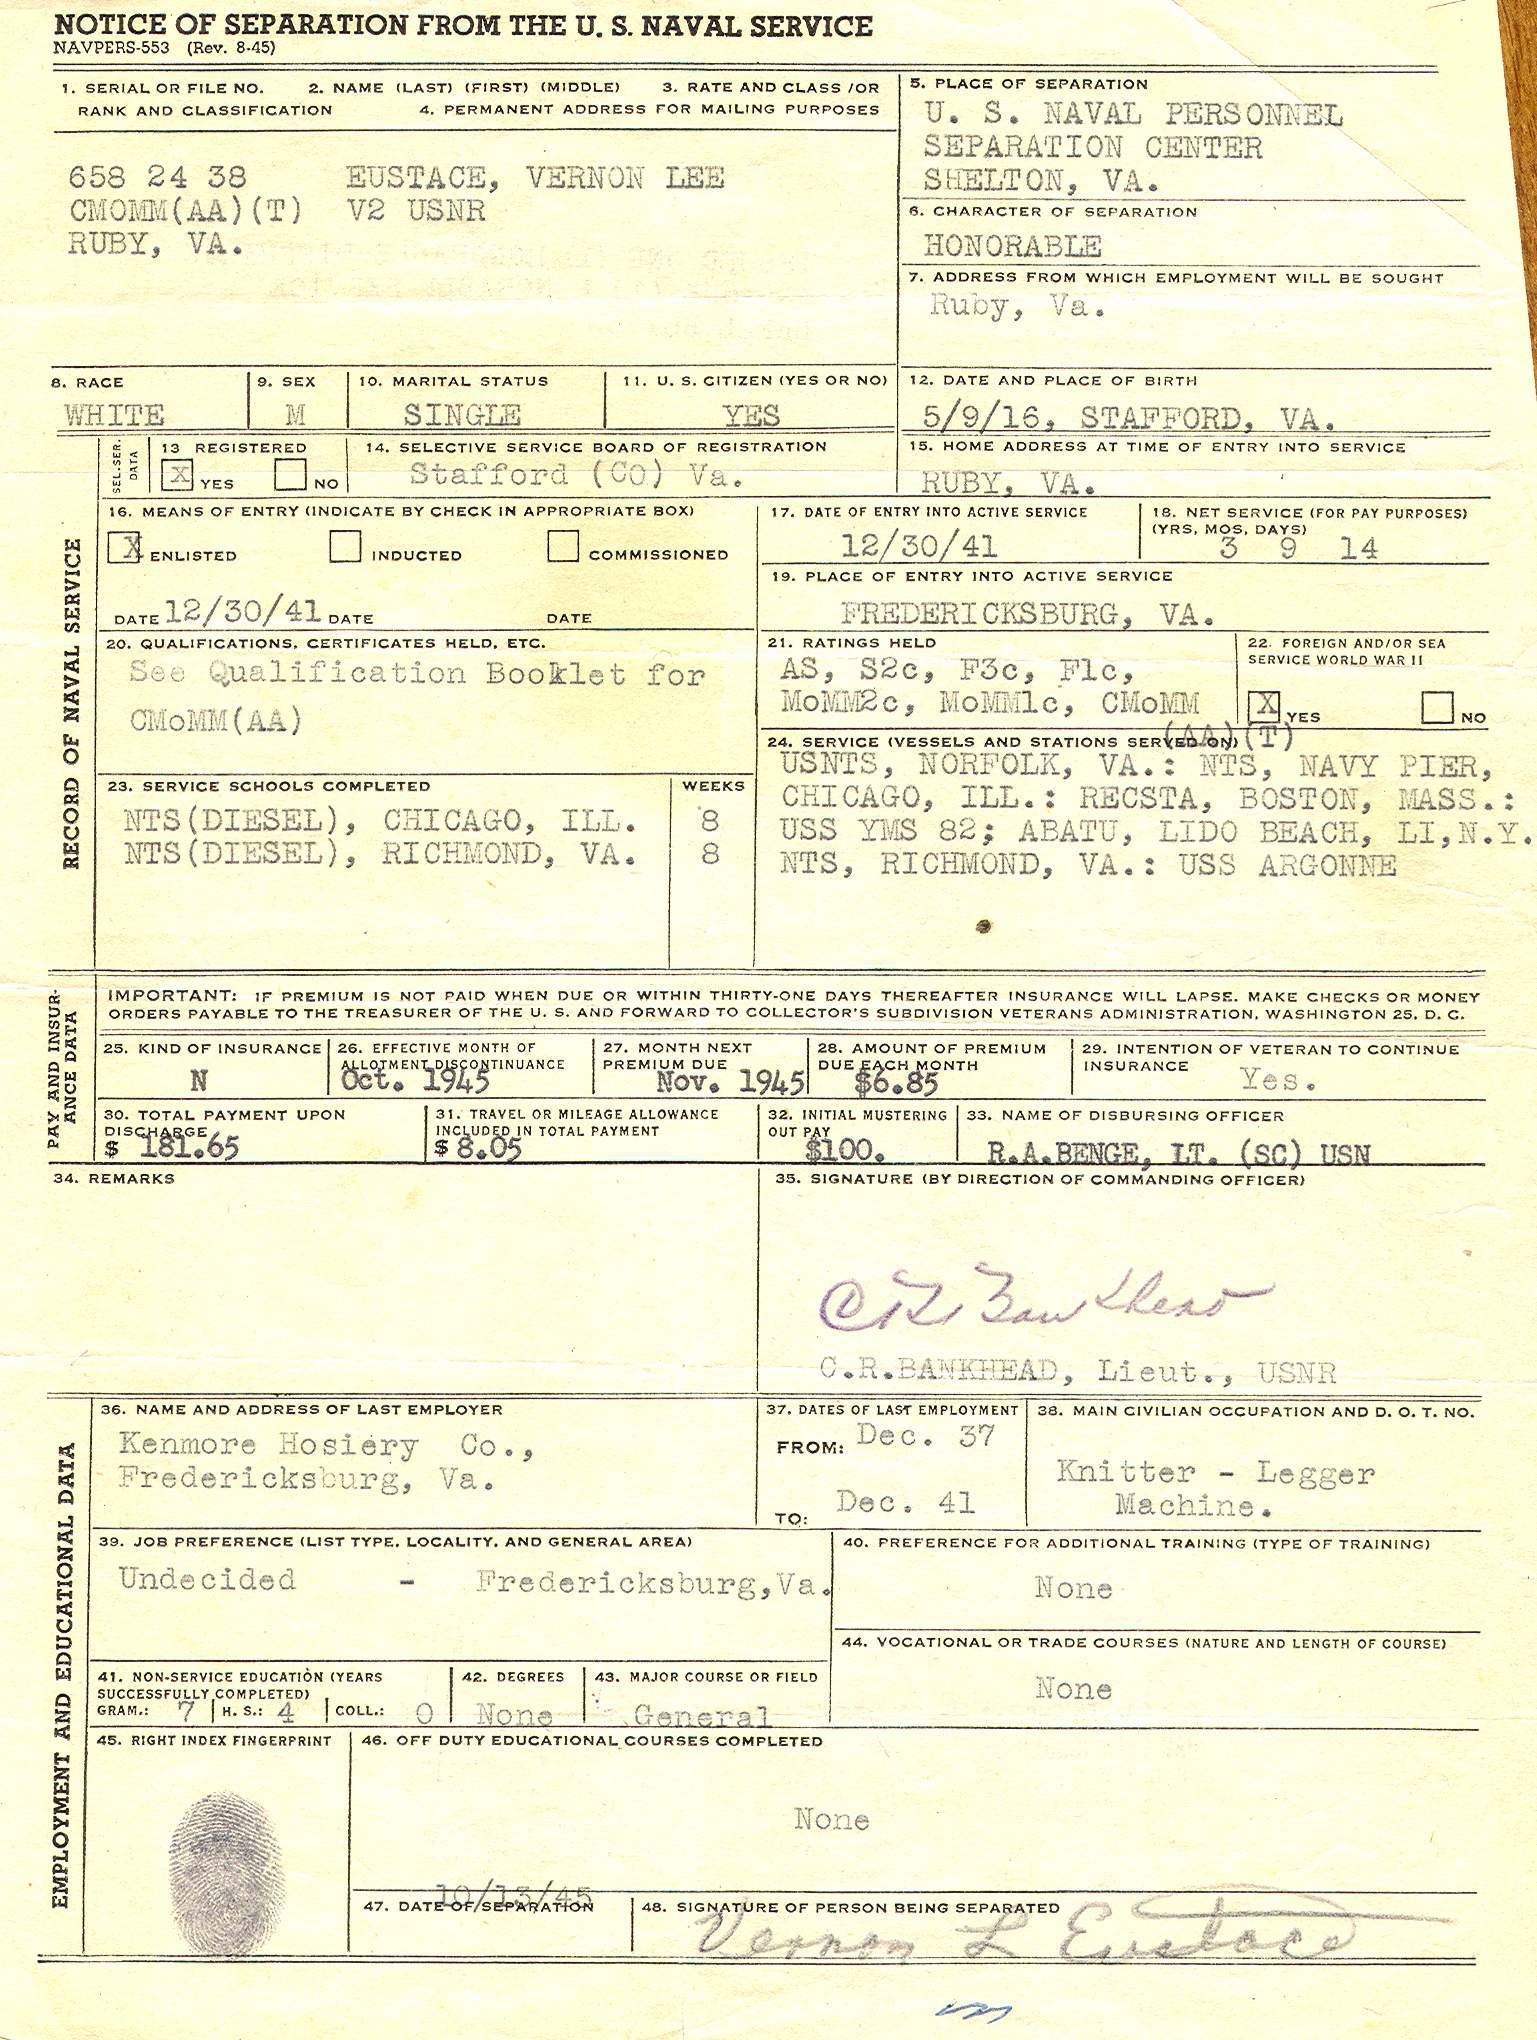 NOTICE OF SEPARATION FROM THE U. S. NAVAL SERVICE
NAVPERS-553 (Rev. 8-45)
1. SERIAL OR FILE NO. 2. NAME (LAST) (FIRST) (MIDDLE) 3. RATE AND CLASS /OR
RANK AND CLASSIFICATION 4. PERMANENT ADDRESS FOR MAILING PURPOSES
658 24 38 EUSTACE, VERNON LEE
CMOMM(AA)(T) V2 USNR
RUBY, VA.
5. PLACE OF SEPARATION
U. S. NAVAL PERSONNEL
SEPARATION CENTER
SHELTON, VA.
6. CHARACTER OF SEPARATION
HONORABLE
7. ADDRESS FROM WHICH EMPLOYMENT WILL BE SOUGHT
Ruby, Va.
8. RACE
WHITE
9. SEX
M
10. MARITAL STATUS
SINGLE
11. U. S. CITIZEN (YES OR NO)
YES
12. DATE AND PLACE OF BIRTH
5/9/16, STAFFORD, VA.
SEL. SER.
DATA
13 REGISTERED
X YES NO
14. SELECTIVE SERVICE BOARD OF REGISTRATION
Stafford (CO) Va.
15. HOME ADDRESS AT TIME OF ENTRY INTO SERVICE
RUBY, VA.
RECORD OF NAVAL SERVICE
16. MEANS OF ENTRY (INDICATE BY CHECK IN APPROPRIATE BOX)
X ENLISTED INDUCTED COMMISSIONED
DATE 12/30/41 DATE DATE
17. DATE OF ENTRY INTO ACTIVE SERVICE
12/30/41
18. NET SERVICE (FOR PAY PURPOSES)
(YRS, MOS, DAYS)
3 9 14
19. PLACE OF ENTRY INTO ACTIVE SERVICE
FREDERICKSBURG, VA.
20. QUALIFICATIONS, CERTIFICATES HELD, ETC.
See Qualification Booklet for
CMoMM(AA)
21. RATINGS HELD
AS, S2c, F3c, F1c,
MoMM2c, MoMM1c, CMoMM
(AA)(T)
22. FOREIGN AND/OR SEA
SERVICE WORLD WAR II
X YES NO
23. SERVICE SCHOOLS COMPLETED WEEKS
NTS(DIESEL), CHICAGO, ILL. 8
NTS(DIESEL), RICHMOND, VA. 8
24. SERVICE (VESSELS AND STATIONS SERVED ON)
USNTS, NORFOLK, VA.: NTS, NAVY PIER,
CHICAGO, ILL.: RECSTA, BOSTON, MASS.:
USS YMS 82; ABATU, LIDO BEACH, LI,N.Y.
NTS, RICHMOND, VA.: USS ARGONNE
PAY AND INSUR-
ANCE DATA
IMPORTANT: IF PREMIUM IS NOT PAID WHEN DUE OR WITHIN THIRTY-ONE DAYS THEREAFTER INSURANCE WILL LAPSE. MAKE CHECKS OR MONEY
ORDERS PAYABLE TO THE TREASURER OF THE U. S. AND FORWARD TO COLLECTOR'S SUBDIVISION VETERANS ADMINISTRATION, WASHINGTON 25, D. C.
25. KIND OF INSURANCE
N
26. EFFECTIVE MONTH OF
ALLOTMENT DISCONTINUANCE
Oct. 1945
27. MONTH NEXT
PREMIUM DUE
Nov. 1945
28. AMOUNT OF PREMIUM
DUE EACH MONTH
$6.85
29. INTENTION OF VETERAN TO CONTINUE
INSURANCE
Yes.
30. TOTAL PAYMENT UPON
DISCHARGE
$ 181.65
31. TRAVEL OR MILEAGE ALLOWANCE
INCLUDED IN TOTAL PAYMENT
$ 8.05
32. INITIAL MUSTERING
OUT PAY
$100.
33. NAME OF DISBURSING OFFICER
R.A.BENGE, LT. (SC) USN
34. REMARKS
35. SIGNATURE (BY DIRECTION OF COMMANDING OFFICER)
C R Bankhead
C.R.BANKHEAD, Lieut., USNR
EMPLOYMENT AND EDUCATIONAL DATA
36. NAME AND ADDRESS OF LAST EMPLOYER
Kenmore Hosiery Co.,
Fredericksburg, Va.
37. DATES OF LAST EMPLOYMENT
FROM: Dec. 37
TO: Dec. 41
38. MAIN CIVILIAN OCCUPATION AND D. O. T. NO.
Knitter - Legger
Machine.
39. JOB PREFERENCE (LIST TYPE, LOCALITY, AND GENERAL AREA)
Undecided - Fredericksburg,Va.
40. PREFERENCE FOR ADDITIONAL TRAINING (TYPE OF TRAINING)
None
41. NON-SERVICE EDUCATION (YEARS
SUCCESSFULLY COMPLETED)
GRAM.: 7 H. S.: 4 COLL.: 0
42. DEGREES
None
43. MAJOR COURSE OR FIELD
General
44. VOCATIONAL OR TRADE COURSES (NATURE AND LENGTH OF COURSE)
None
45. RIGHT INDEX FINGERPRINT
46. OFF DUTY EDUCATIONAL COURSES COMPLETED
None
10/13/45
47. DATE OF SEPARATION
48. SIGNATURE OF PERSON BEING SEPARATED
Vernon L Eustace